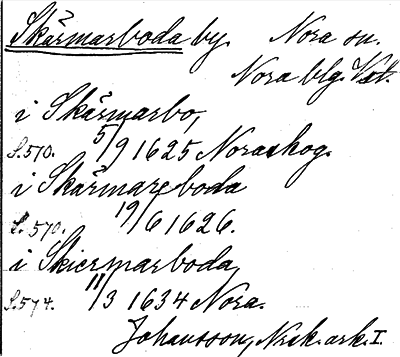 Skärmarboda by. Nora sn.
Nora blg. Vstm.
i Skärmarbo,
S. 570. 5/9 1625 Noraskog.
i Skärmareboda
S. 570. 19/6 1626.
i Skiermarboda,
S. 574. 11/3 1634 Nora.
Johansson, Nrsk. ark. I.